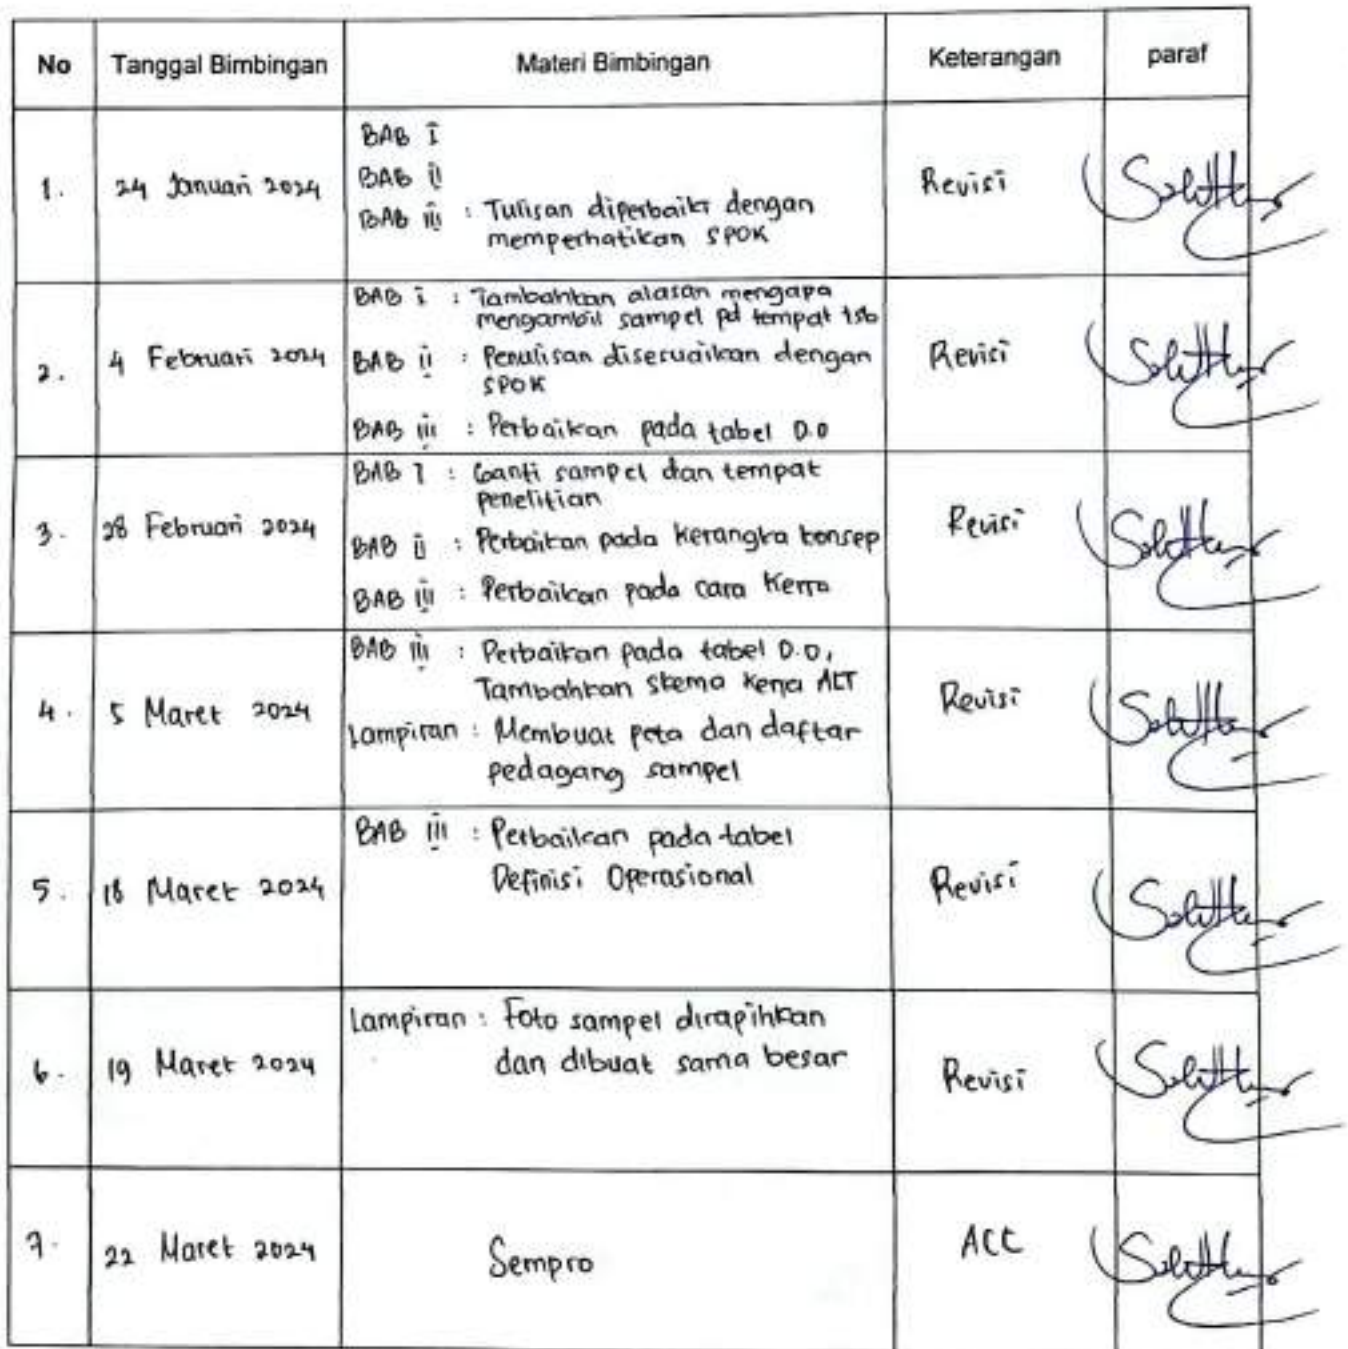 No Tanggal Bimbingan Materi Bimbingan Keterangan paraf
1. 24 Januari 2024 Revisi
BAB I
BAB II
BAB III : Tulisan diperbaiki dengan
memperhatikan SPOK
2. 4 Februari 2024 Revisi
BAB I : Tambahkan alasan mengapa
mengambil sampel pd tempat tsb
BAB II : Penulisan disesuaikan dengan
SPOK
BAB III : Perbaikan pada tabel D.O
3. 28 Februari 2024 Revisi
BAB I : Ganti sampel dan tempat
penelitian
BAB II : Perbaikan pada kerangka konsep
BAB III : Perbaikan pada cara kerja
4. 5 Maret 2024 Revisi
BAB III : Perbaikan pada tabel D.O,
Tambahkan skema kerja ALT
Lampiran : Membuat peta dan daftar
pedagang sampel
5. 18 Maret 2024 Revisi
BAB III : Perbaikan pada tabel
Definisi Operasional
6. 19 Maret 2024 Revisi
Lampiran : Foto sampel dirapihkan
dan dibuat sama besar
7. 22 Maret 2024 Sempro ACC